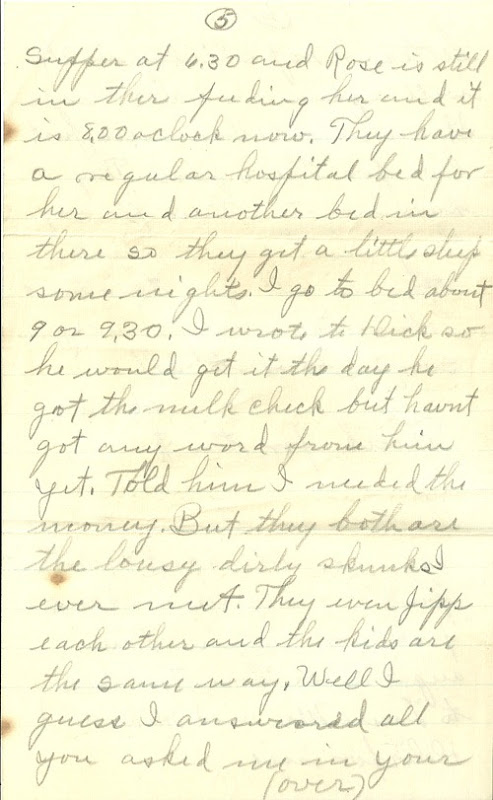 5
Supper at 6.30 and Rose is still
in ther feeding her and it
is 8,00 oclock now. They have
a regular hospital bed for
her and another bed in
there so they get a little sleep
some nights. I go to bed about
9 or 9,30. I wrote to Dick so
he would get it the day he
got the milk check but havnt
got any word from him
yet. Told him I needed the
money. But they both are
the lousy dirty skunks I
ever met. They even jipp
each other and the kids are
the same way. Well I
guess I answered all
you asked me in your
(over)